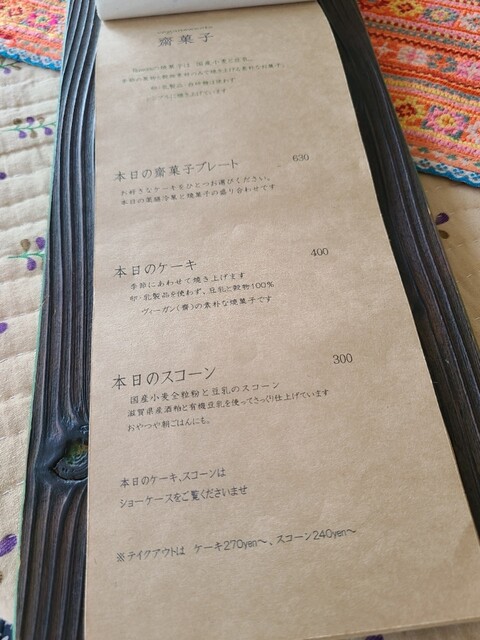 齋菓子
卵・乳製品・白砂糖は使わず
本日の齋菓子プレート 630
お好きなケーキをひとつお選びください。
本日の薬膳冷菓と焼菓子の盛り合わせです
本日のケーキ 400
季節にあわせて焼き上げます
卵・乳製品を使わず、豆乳と穀物100%
ヴィーガン(齋)の素朴な焼菓子です
本日のスコーン 300
国産小麦全粒粉と豆乳のスコーン
滋賀県産酒粕と有機豆乳を使ってさっくり仕上げています
おやつや朝ごはんにも。
本日のケーキ、スコーンは
ショーケースをご覧くださいませ
※テイクアウトは ケーキ270yen〜、スコーン240yen〜